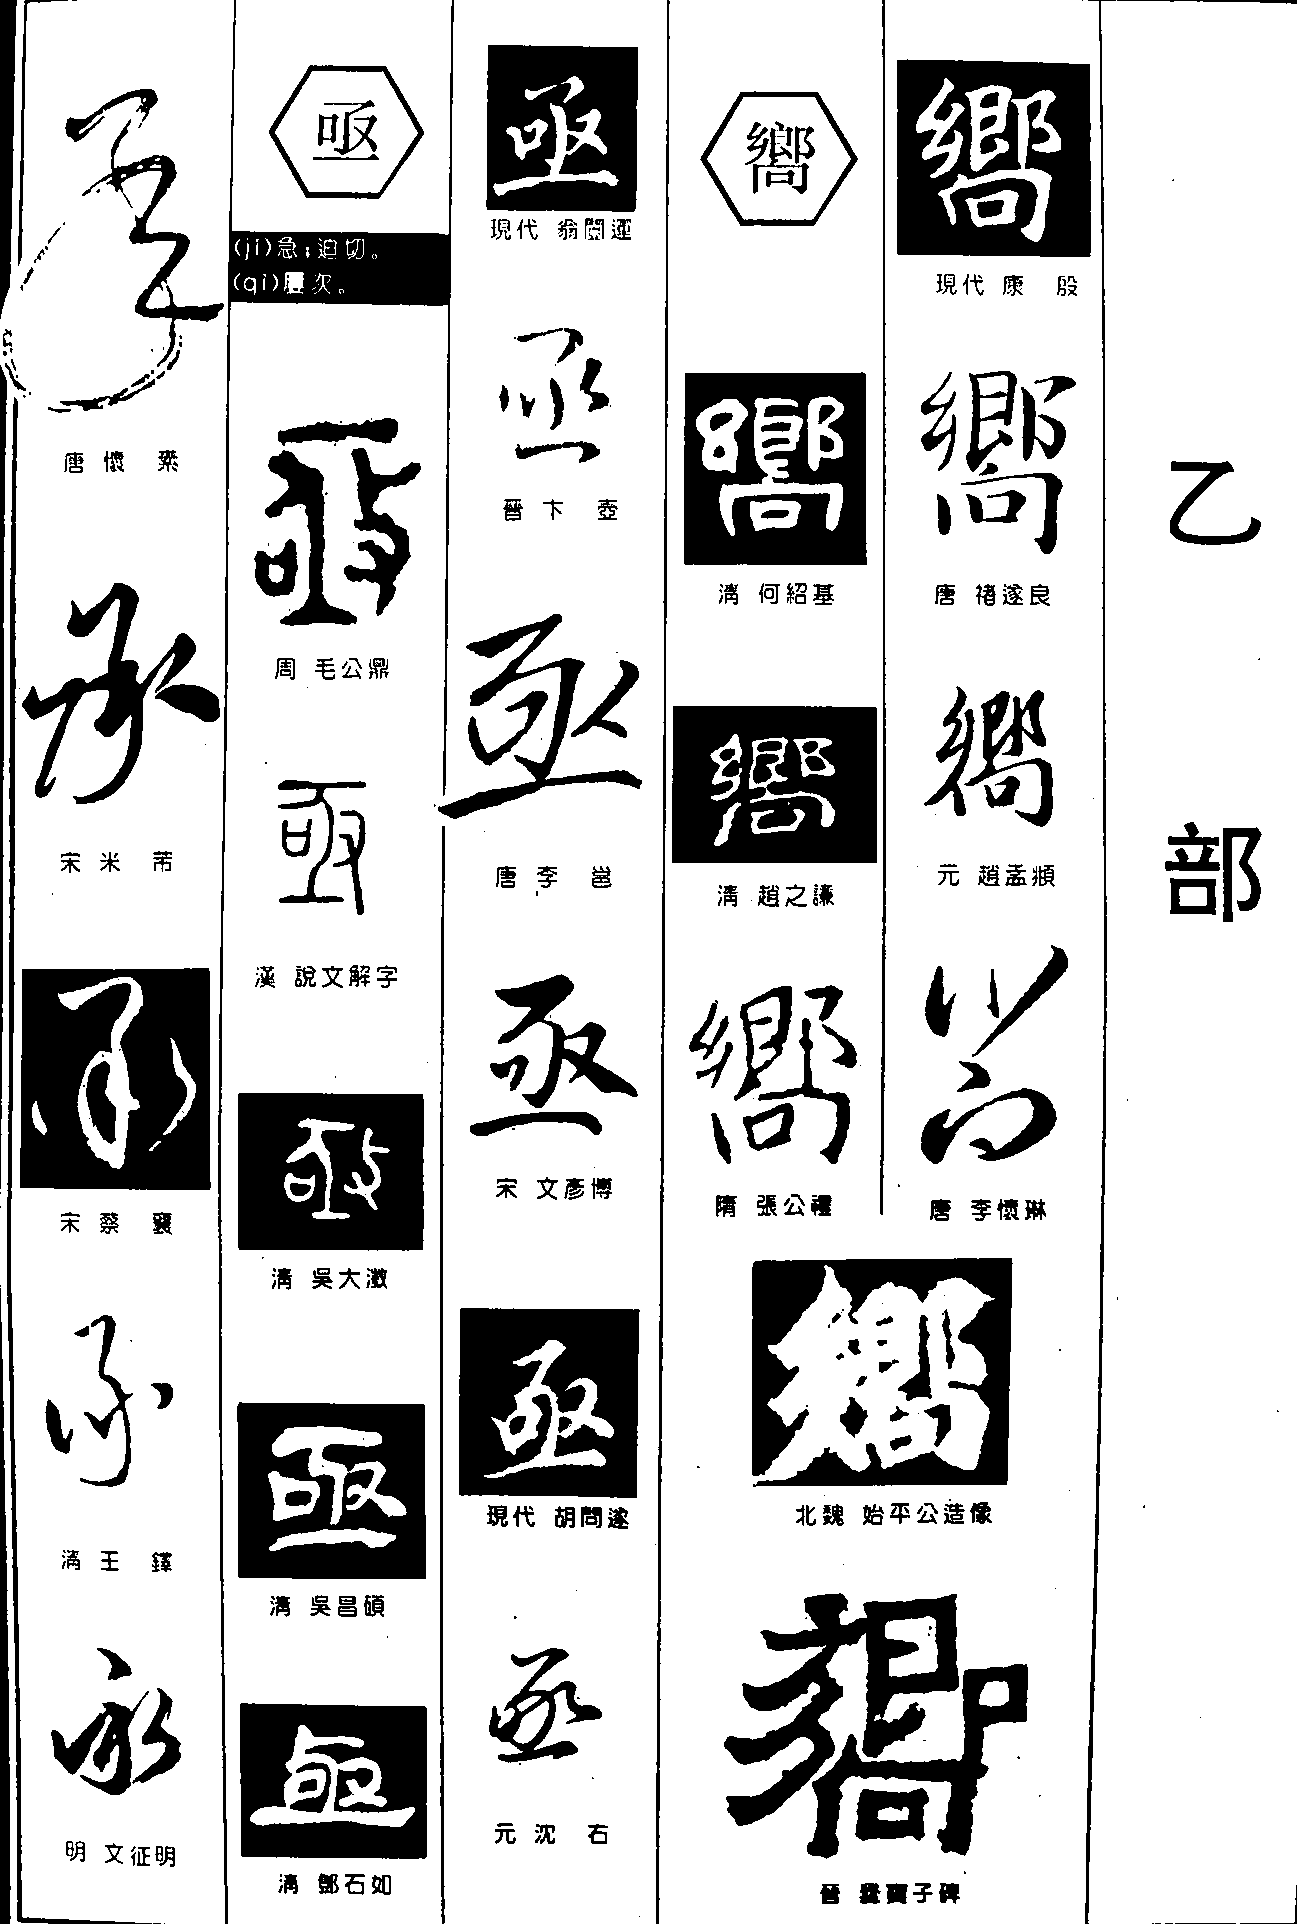 乙部
嚮
現代 康 殷
唐 褚遂良
元 趙孟頫
唐 李懷琳
嚮
嚮
清 何紹基
嚮
清 趙之謙
嚮
隋 張公禮
嚮
北魏 始平公造像
嚮
晉 爨寶子碑
亟
現代 翁闓運
亟
晉 卞 壺
亟
唐 李 邕
亟
宋 文彥博
亟
現代 胡問遂
亟
元 沈 右
亟
(jí)急；迫切。
(qì)屢次。
亟
周 毛公鼎
亟
漢 說文解字
亟
清 吳大澂
亟
清 吳昌碩
亟
清 鄧石如
承
唐 懷 素
承
宋 米 芾
承
宋 蔡 襄
承
清 王 鐸
承
明 文征明